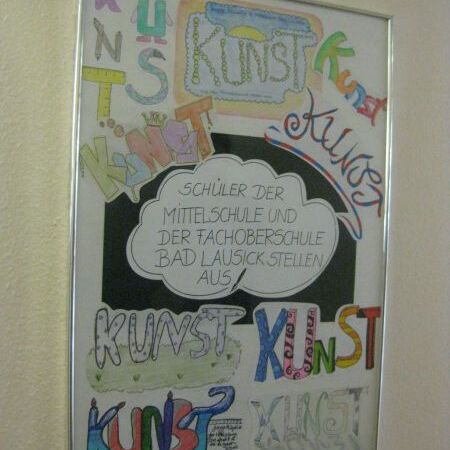 KUNST
KUNST
Kunst
KUNST
KUNST
SCHÜLER DER
MITTELSCHULE UND
DER FACHOBERSCHULE
BAD LAUSICK STELLEN
AUS
KUNST
KUNST
KUNST
KUNST